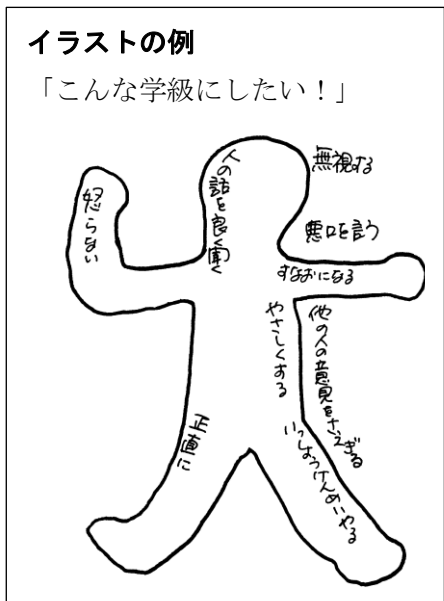 イラストの例
「こんな学級にしたい！」
人の話を良く聞く
無視する
怒らない
悪口を言う
すなおになる
やさしくする
他の人の意見をさえぎる
正直に
いっしょうけんめいやる